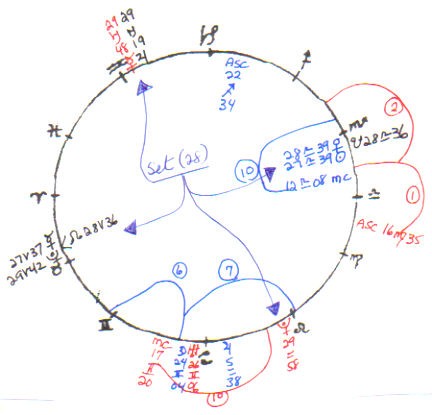 29 29
♅ ♉
48 19
♒ 21
♑
ASC
22
♐
34
♐
②
♏
28 ♎ 39 ♀
29 ♎ 39 ☉
☋ 28 ♎ 36
12 ♎ 08 MC
♎
①
ASC 16 ♍ 35
♍
♓
Set (28)
⑩
♈
☊ 28 ♈ 36
27 ♈ 37
29 ♈ 42
⑥
⑦
♊
♌
MC
17
♊
20
☽
24
♊
04
♅
26
♊
06
♋
♃
5
♋
38
♀
29
♋
58
⑩